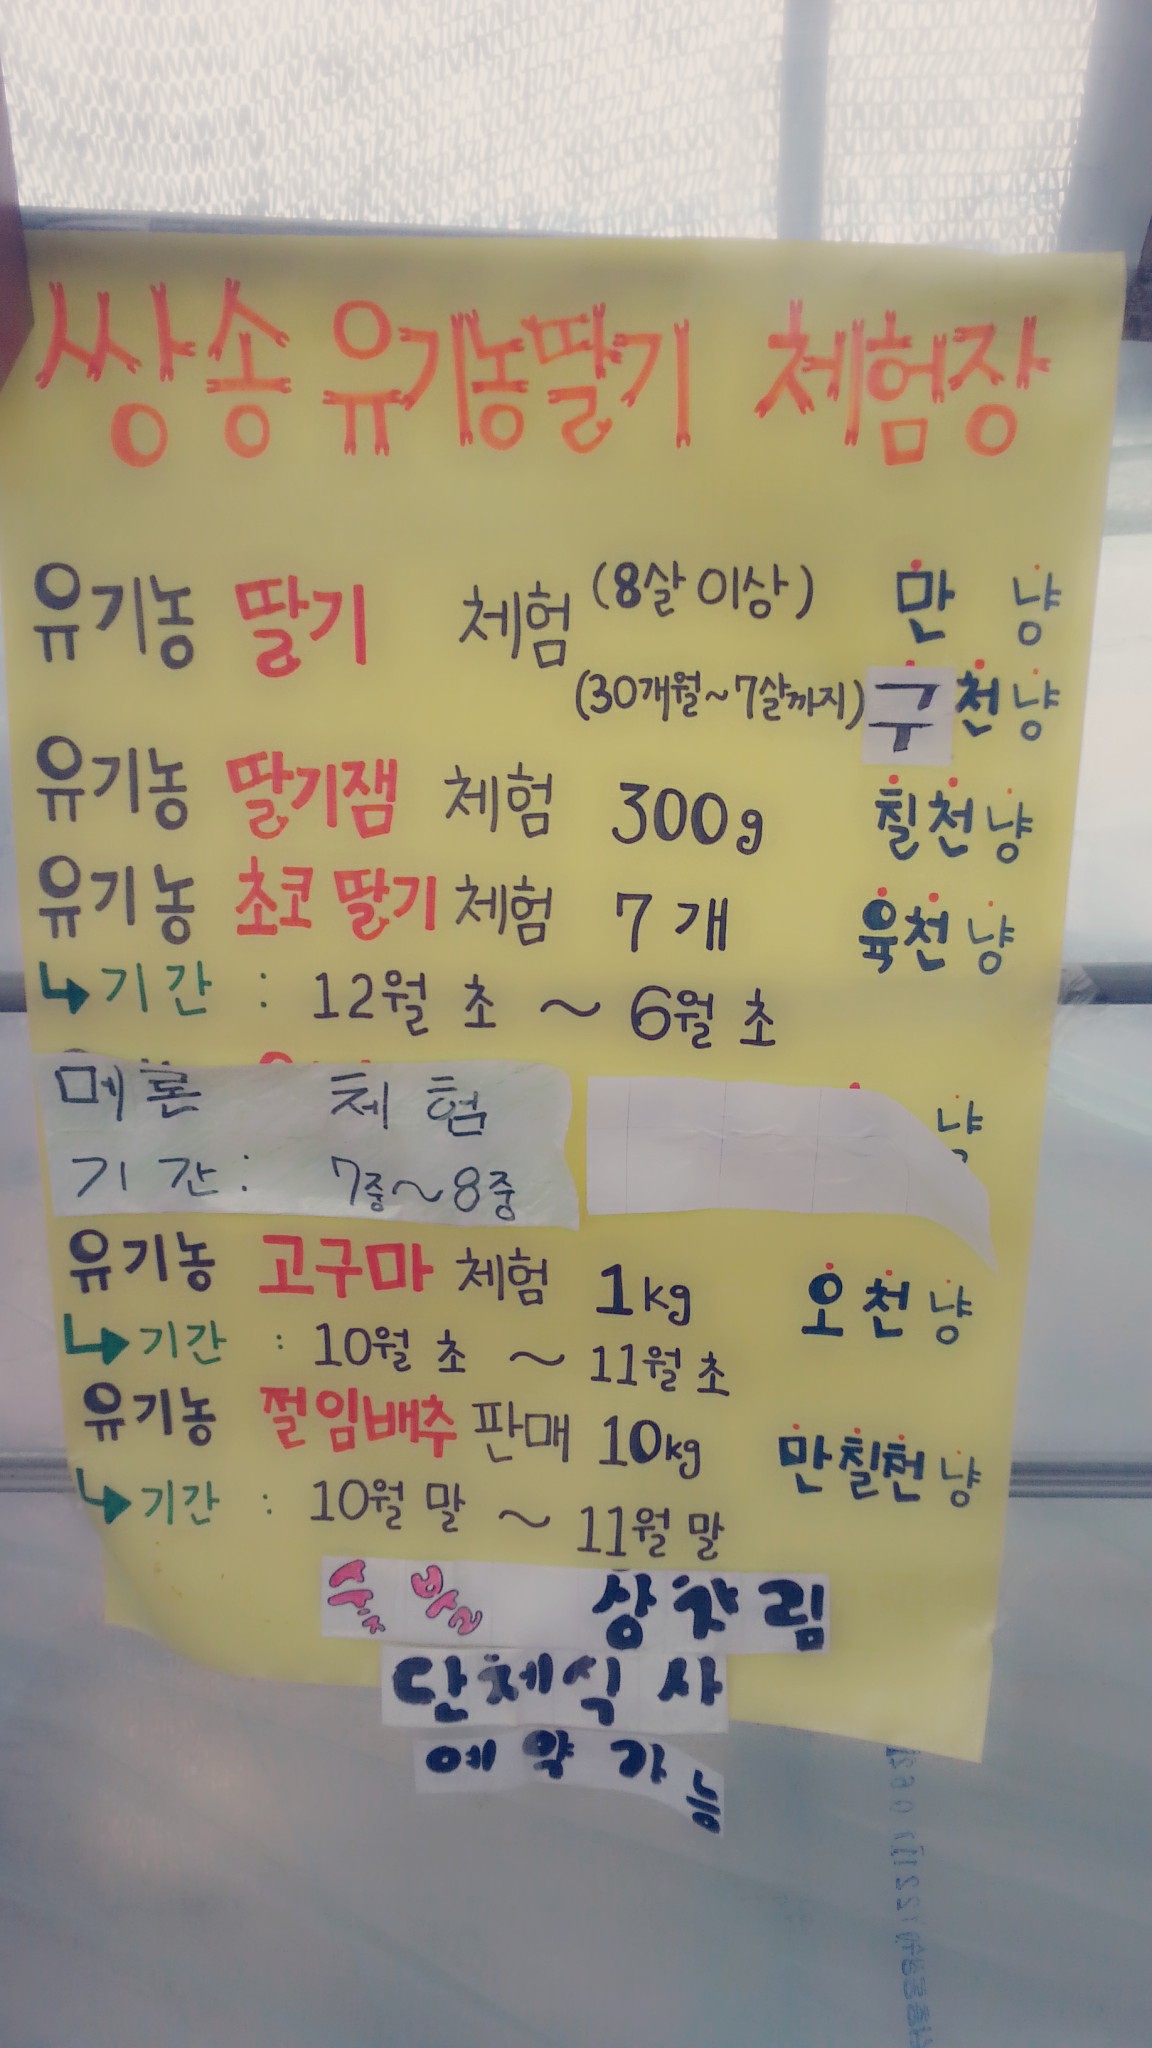 쌍송 유기농딸기 체험장
유기농 딸기 체험 (8살 이상) 만 냥
(30개월~7살까지) 구천냥
유기농 딸기잼 체험 300g 칠천냥
유기농 초코 딸기 체험 7개 육천냥
↳기간 : 12월 초 ~ 6월 초
메론 체험 냥
기간: 7중~8중
유기농 고구마 체험 1kg 오천냥
↳기간 : 10월 초 ~ 11월 초
유기농 절임배추 판매 10kg 만칠천냥
↳기간 : 10월 말 ~ 11월 말
숯불 상차림
단체식사
예약가능